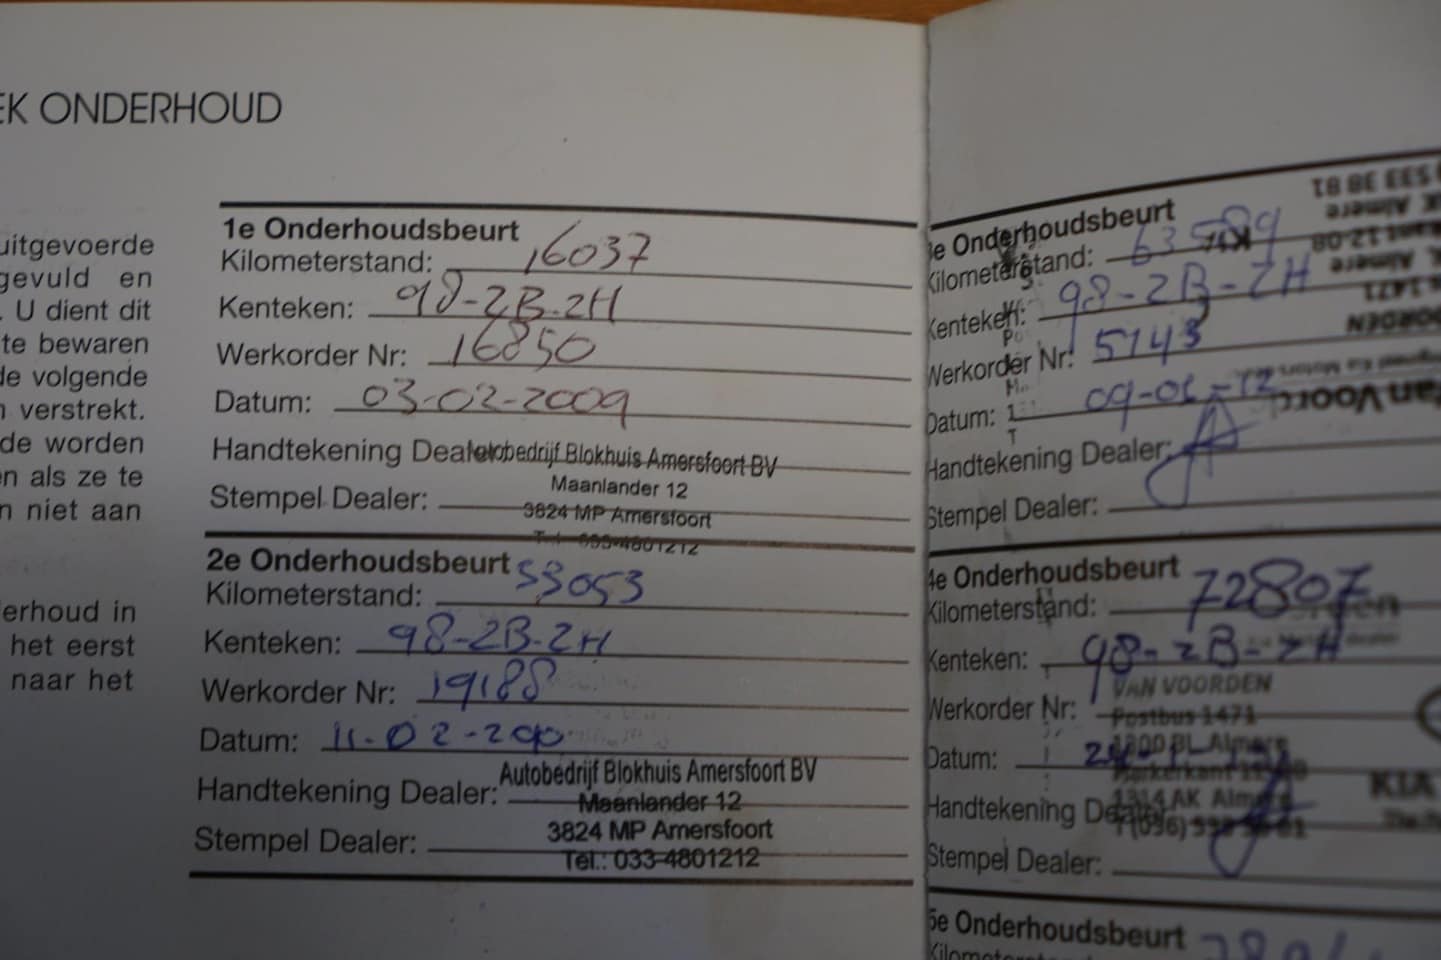 EK ONDERHOUD
uitgevoerde
gevuld en
. U dient dit
te bewaren
de volgende
n verstrekt.
de worden
en als ze te
n niet aan
erhoud in
het eerst
naar het
1e Onderhoudsbeurt
Kilometerstand: 16037
Kenteken: 98-2B-2H
Werkorder Nr: 16850
Datum: 03-02-2009
Handtekening Dealer: Autobedrijf Blokhuis Amersfoort BV
Maanlander 12
Stempel Dealer: 3824 MP Amersfoort
Tel.: 033-4801212
2e Onderhoudsbeurt
Kilometerstand: 33053
Kenteken: 98-2B-2H
Werkorder Nr: 19188
Datum: 11-02-20
Handtekening Dealer: Autobedrijf Blokhuis Amersfoort BV
Maanlander 12
Stempel Dealer: 3824 MP Amersfoort
Tel.: 033-4801212
3e Onderhoudsbeurt
Kilometerstand: 63589
Kenteken: 98-2B-2H
Werkorder Nr: 5143
Datum:
Handtekening Dealer:
Stempel Dealer:
533 38 81
Almere
12-08
Almere
1471
VOORDEN
Van Voord
4e Onderhoudsbeurt
Kilometerstand: 72807
Kenteken: 98-2B-2H
VAN VOORDEN
Werkorder Nr: Postbus 1471
Datum: 24 1300 BL Almere
Markerkant
Handtekening Dealer: 1314 AK Almere
Stempel Dealer:
KIA
5e Onderhoudsbeurt
Kilometerstand: